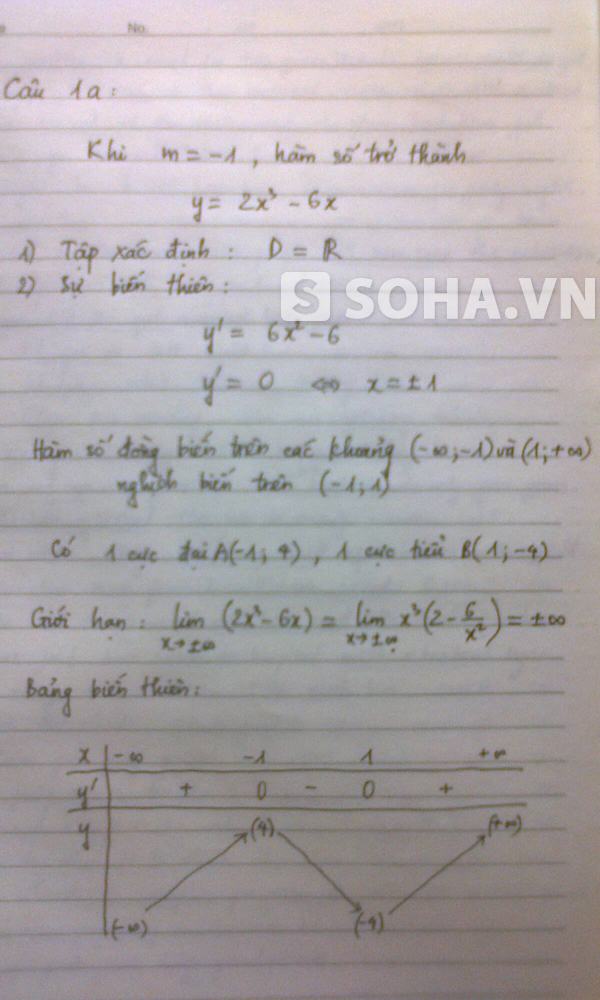 No.
Câu 1a:
Khi m = -1, hàm số trở thành
y = 2x³ - 6x
1) Tập xác định: D = R
2) Sự biến thiên:
SOHA.VN
y' = 6x² - 6
y' = 0 ⇔ x = ±1
Hàm số đồng biến trên các khoảng (-∞;-1) và (1;+∞)
nghịch biến trên (-1;1)
Có 1 cực đại A(-1; 4), 1 cực tiểu B(1;-4)
Giới hạn: lim x→±∞ (2x³-6x) = lim x→±∞ x³(2 - 6/x²) = ±∞
Bảng biến thiên:
x -∞ -1 1 +∞
y' + 0 - 0 +
y (4) (+∞)
(-∞) (-4)